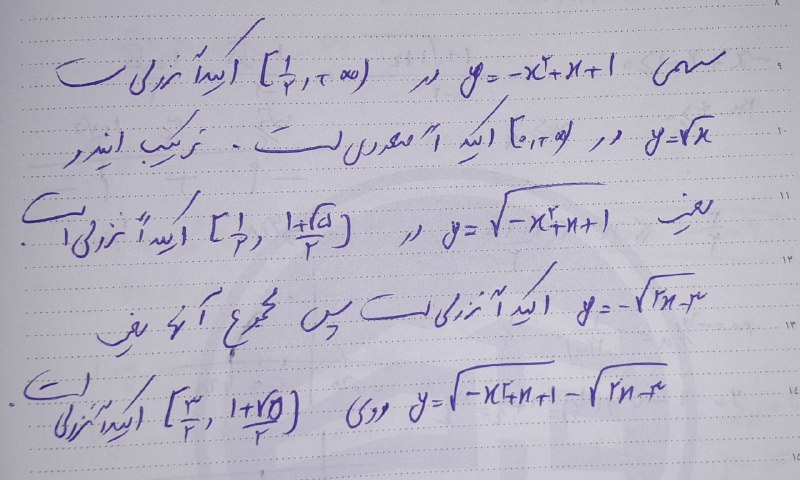 سهمی y = -x² + x + 1 در [۱/۲, +∞) اکیداً نزولی است
y = √x در [۰, +∞) اکیداً صعودی است. ترکیب این دو
یعنی y = √(-x² + x + 1) در [۱/۲, (۱+√۵)/۲] اکیداً نزولی است.
y = -√(۲x-۳) اکیداً نزولی است پس مجموع آنها یعنی
y = √(-x² + x + 1) - √(۲x-۳) روی [۳/۲, (۱+√۵)/۲] اکیداً نزولی است.
۸
۹
۱۰
۱۱
۱۲
۱۳
۱۴
۱۵